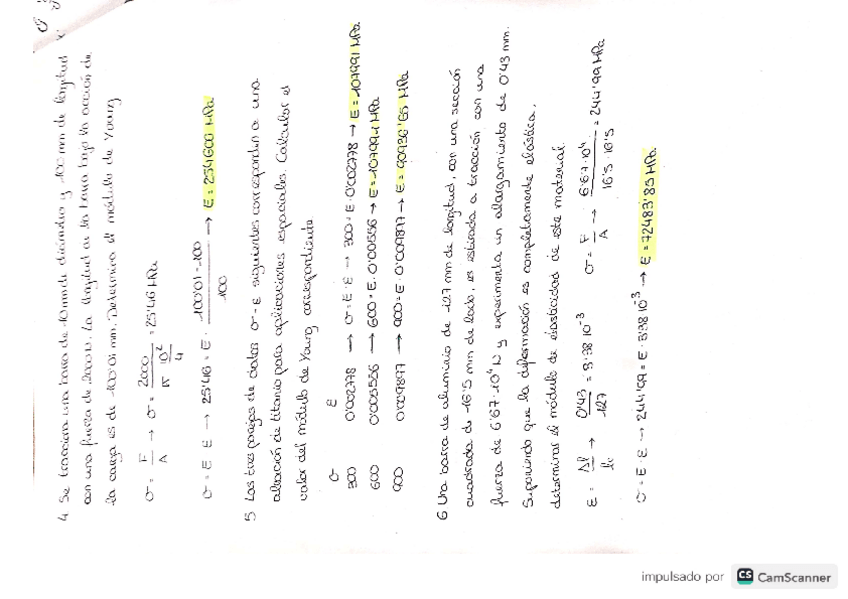 4 Se tracciona una barra de 10 mm de diámetro y 100 mm de longitud
con una fuerza de 2000 N. La longitud de la barra bajo la acción de
la carga es de 100'01 mm. Determina el módulo de Young
σ = F/A → σ = 2000 / (π 10²/4) = 25'46 MPa
σ = E ε → 25'46 = E · (100'01 - 100)/100 → E = 254600 MPa
5 Las tres parejas de datos σ-ε siguientes corresponden a una
aleación de titanio para aplicaciones espaciales. Calcular el
valor del módulo de Young correspondiente.
σ ε
300 0'002778 → σ = E·ε → 300 = E·0'002778 → E = 107991 MPa
600 0'005556 → 600 = E·0'005556 → E = 107991 MPa
900 0'009897 → 900 = E·0'009897 → E = 90936'65 MPa
6 Una barra de aluminio de 127 mm de longitud, con una sección
cuadrada de 16'5 mm de lado, es estirada a tracción con una
fuerza de 6'67·10⁴ N y experimenta un alargamiento de 0'43 mm.
Suponiendo que la deformación es completamente elástica,
determinar el módulo de elasticidad de este material.
ε = Δl/l₀ → 0'43/127 = 3'38·10⁻³ σ = F/A → 6'67·10⁴/(16'5·16'5) = 244'99 MPa
σ = E·ε → 244'99 = E·3'38·10⁻³ → E = 72483'85 MPa.
impulsado por CS CamScanner